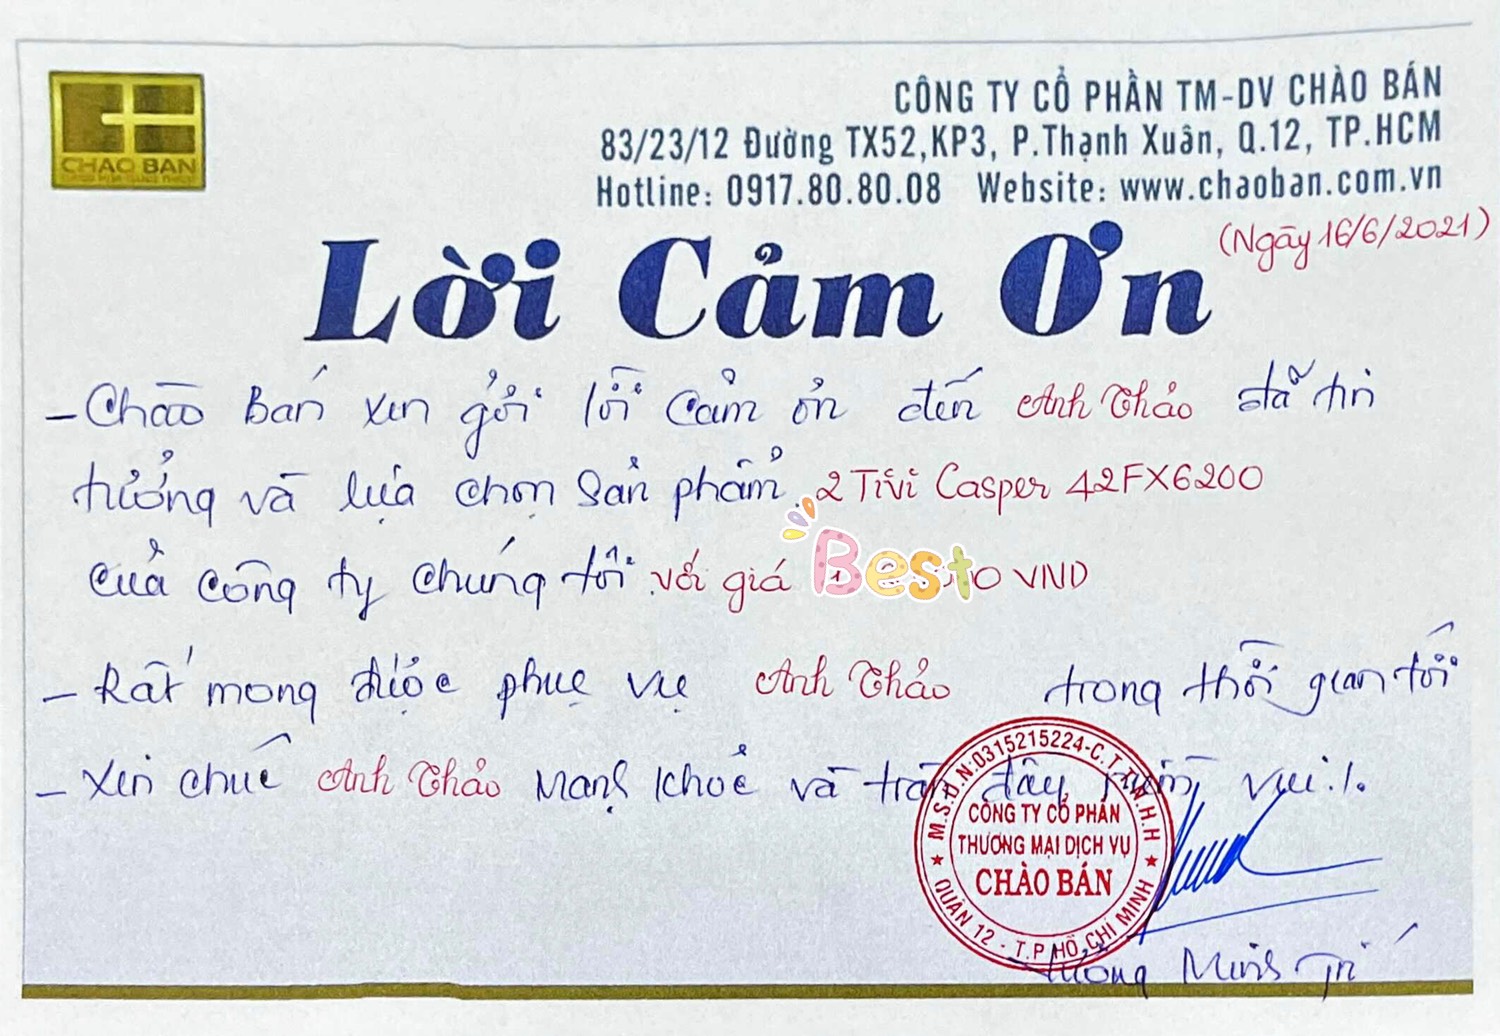 CHAO BAN
CÔNG TY CỔ PHẦN TM-DV CHÀO BÁN
83/23/12 Đường TX52,KP3, P.Thạnh Xuân, Q.12, TP.HCM
Hotline: 0917.80.80.08 Website: www.chaoban.com.vn
(Ngày 16/6/2021)
Lời Cảm Ơn
- Chào Bán xin gởi lời cảm ơn đến Anh Thảo đã tin
tưởng và lựa chọn sản phẩm 2 Tivi Casper 42FX6200
của công ty chúng tôi với giá Best VND
- Rất mong được phục vụ Anh Thảo trong thời gian tới
- Xin chúc Anh Thảo mạnh khoẻ và tràn đầy niềm vui./.
M.S.D.N:0315215224-C.T.T.N.H.H
CÔNG TY CỔ PHẦN
THƯƠNG MẠI DỊCH VỤ
CHÀO BÁN
QUẬN 12 - T.P HỒ CHÍ MINH
Minh Trí